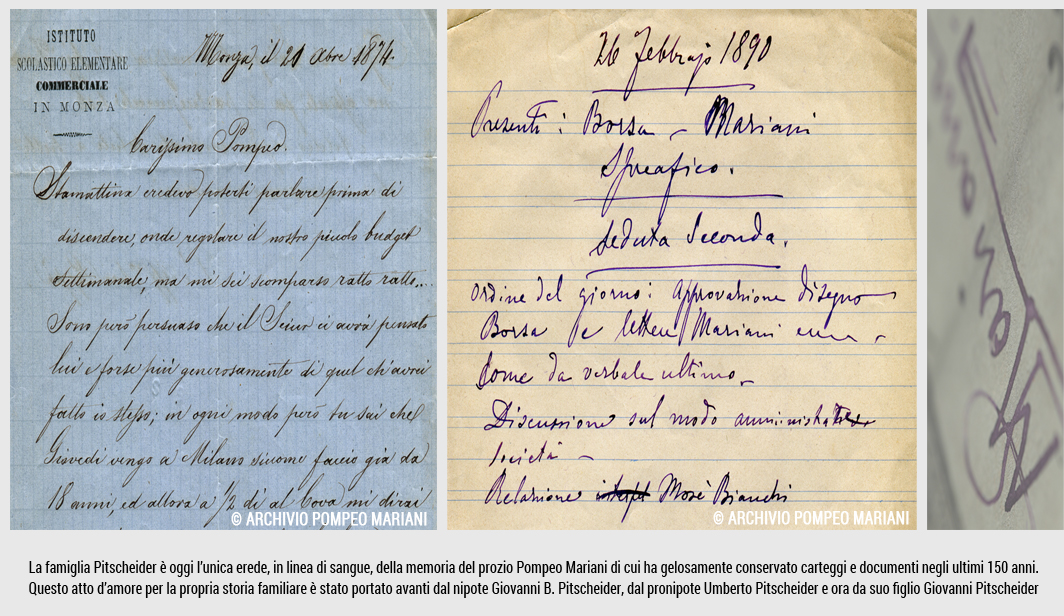 ISTITUTO
SCOLASTICO ELEMENTARE
COMMERCIALE
IN MONZA
Monza, il 21 Xbre 1874.
Carissimo Pompeo.
Stamattina credevo poterti parlare prima di
discendere, onde regolare il nostro piccolo budget
settimanale, ma mi sei scomparso ratto ratto...
Sono però persuaso che il Sciur ci avrà pensato
lui e forse più generosamente di quel ch'avrei
fatto io stesso; in ogni modo però tu sai che
Giovedì vengo a Milano siccome faccio già da
18 anni, ed allora a 1/2 dì al Cova mi dirai
© ARCHIVIO POMPEO MARIANI
26 Febbrajo 1890
Presenti: Borsa - Mariani
Spreafico.
Seduta Seconda.
Ordine del giorno: Approvazione disegno
Borsa e lettera Mariani
Come da verbale ultimo
Discussione sul modo
società -
Relazione Mosè Bianchi
© ARCHIVIO POMPEO MARIANI
La famiglia Pitscheider è oggi l'unica erede, in linea di sangue, della memoria del prozio Pompeo Mariani di cui ha gelosamente conservato carteggi e documenti negli ultimi 150 anni.
Questo atto d'amore per la propria storia familiare è stato portato avanti dal nipote Giovanni B. Pitscheider, dal pronipote Umberto Pitscheider e ora da suo figlio Giovanni Pitscheider